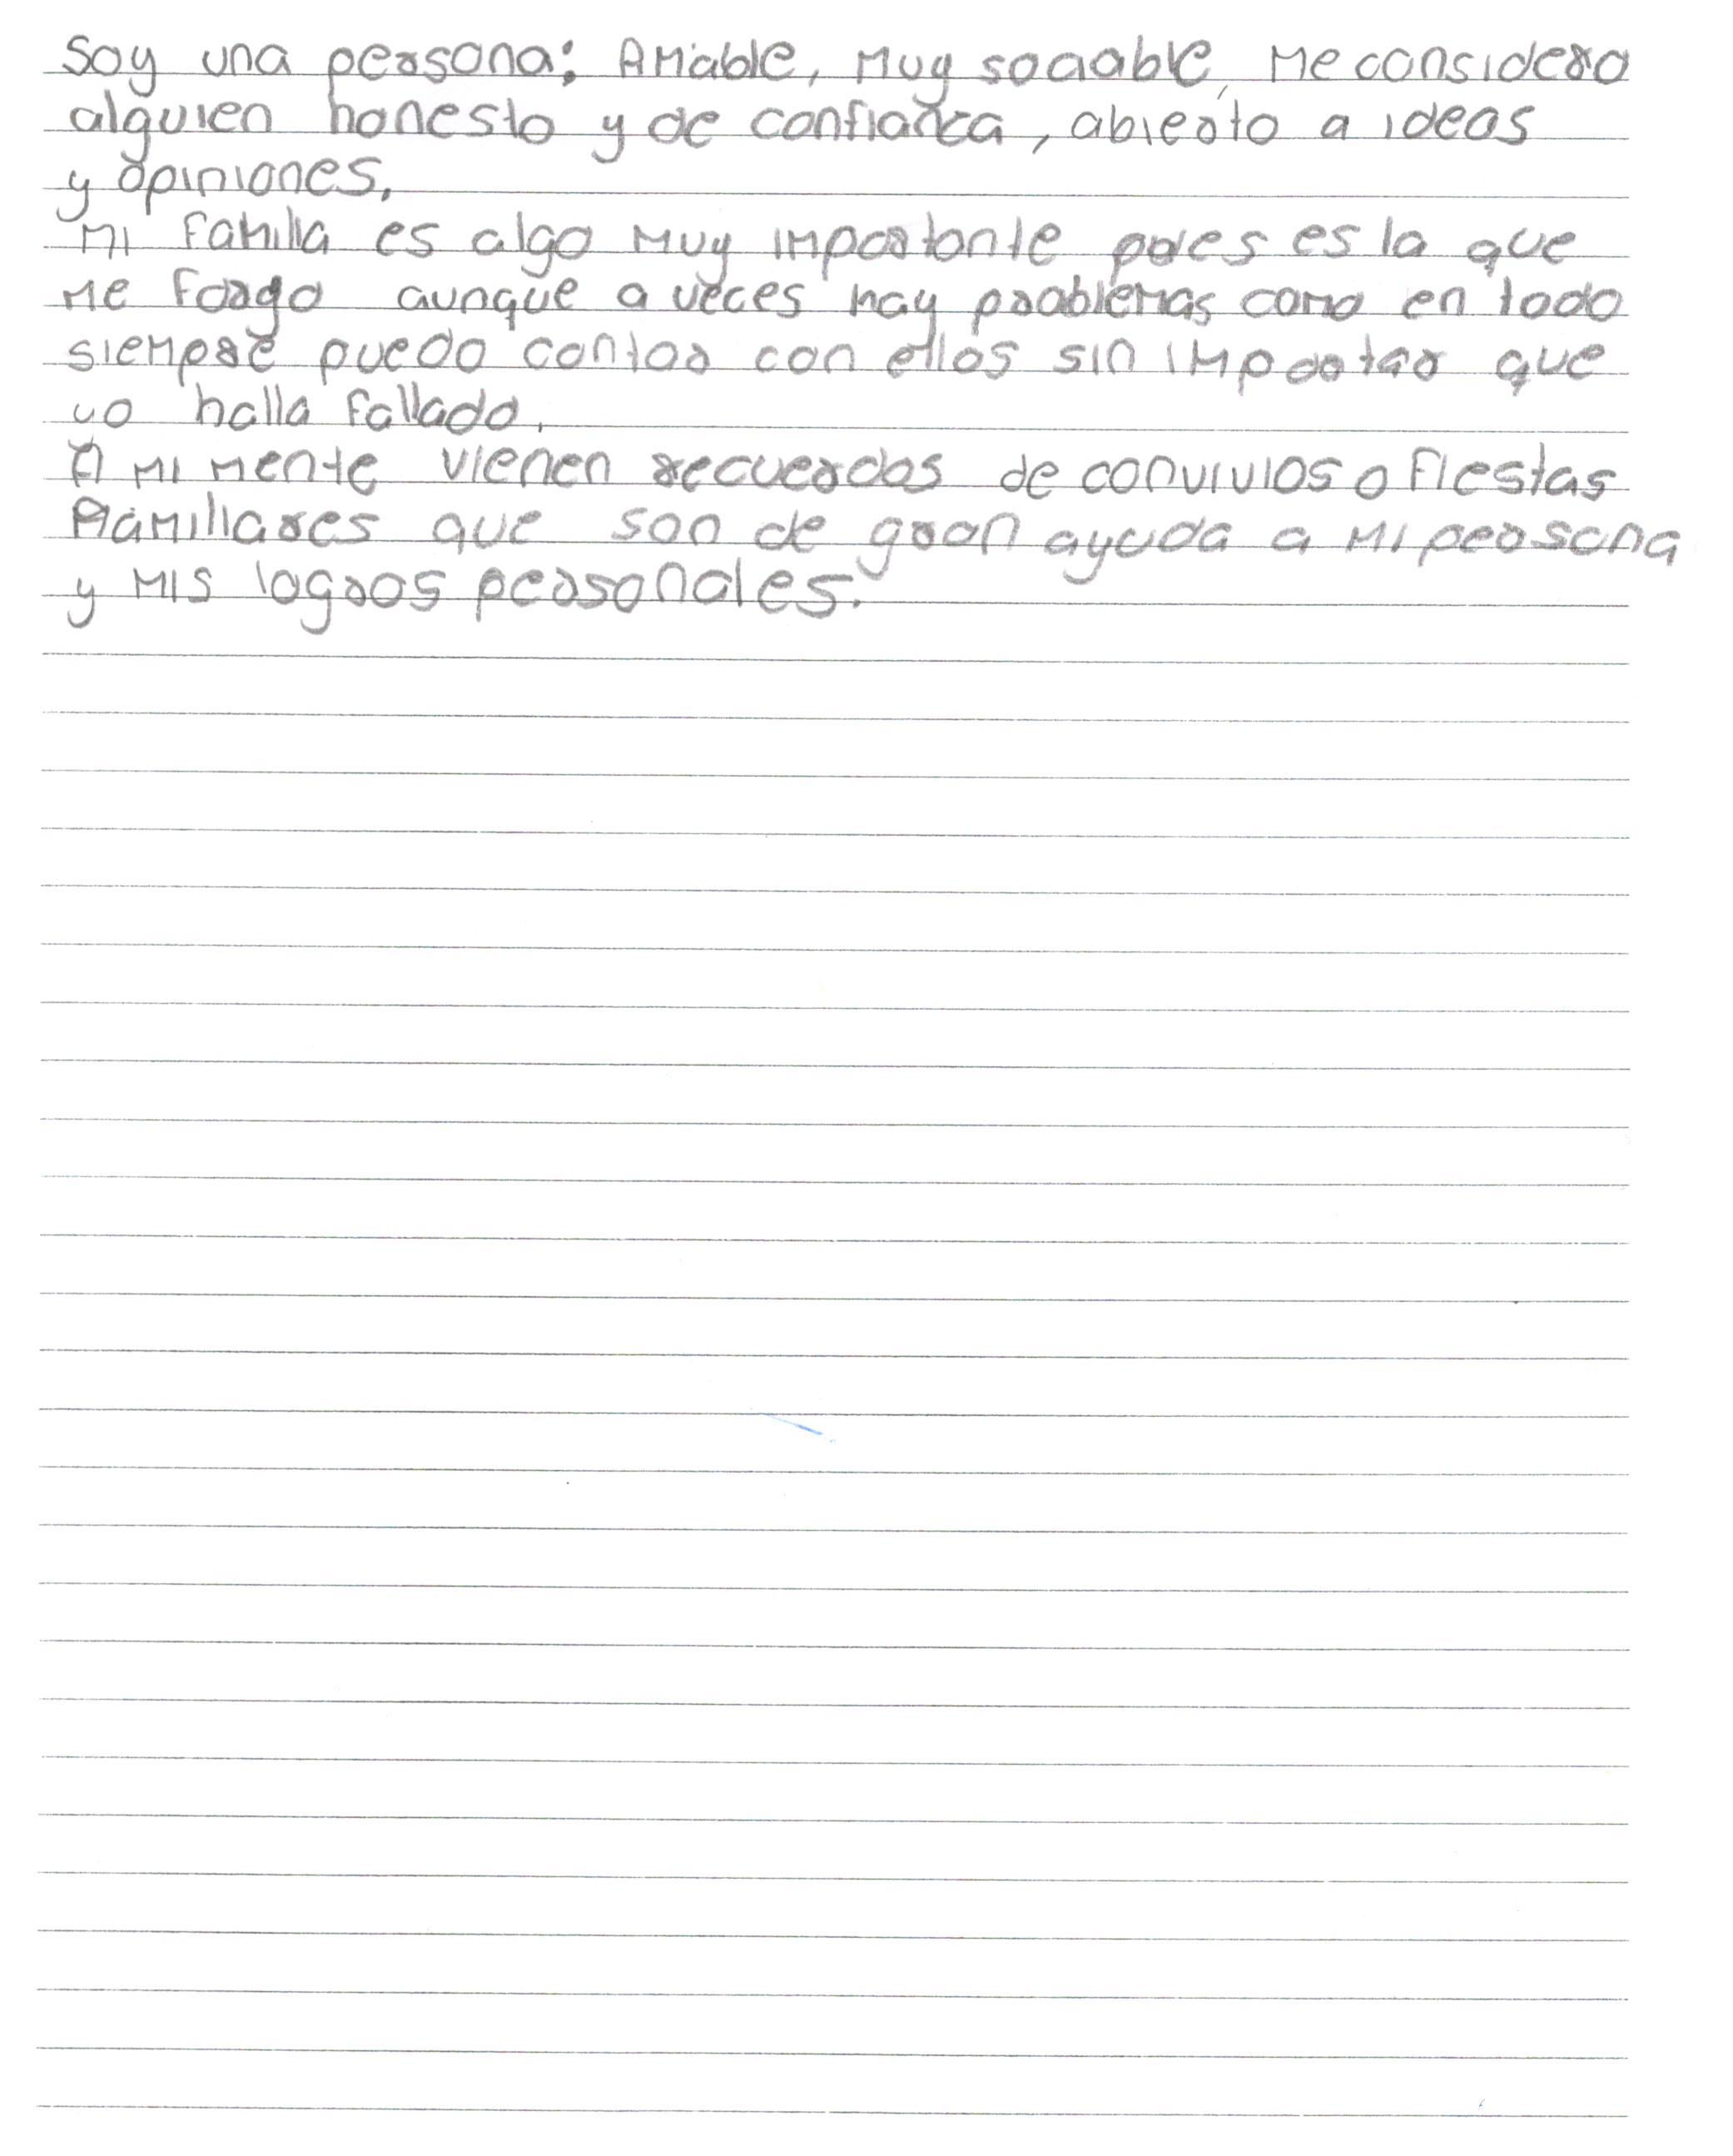 Soy una persona: Amable, muy sociable, me considero
alguien honesto y de confianza, abierto a ideas
y opiniones.
Mi familia es algo muy importante pues es la que
me forgo aunque a veces hay problemas como en todo
siempre puedo contar con ellos sin importar que
yo halla fallado.
A mi mente vienen recuerdos de convivios o fiestas
familiares que son de gran ayuda a mi persona
y mis logros personales.